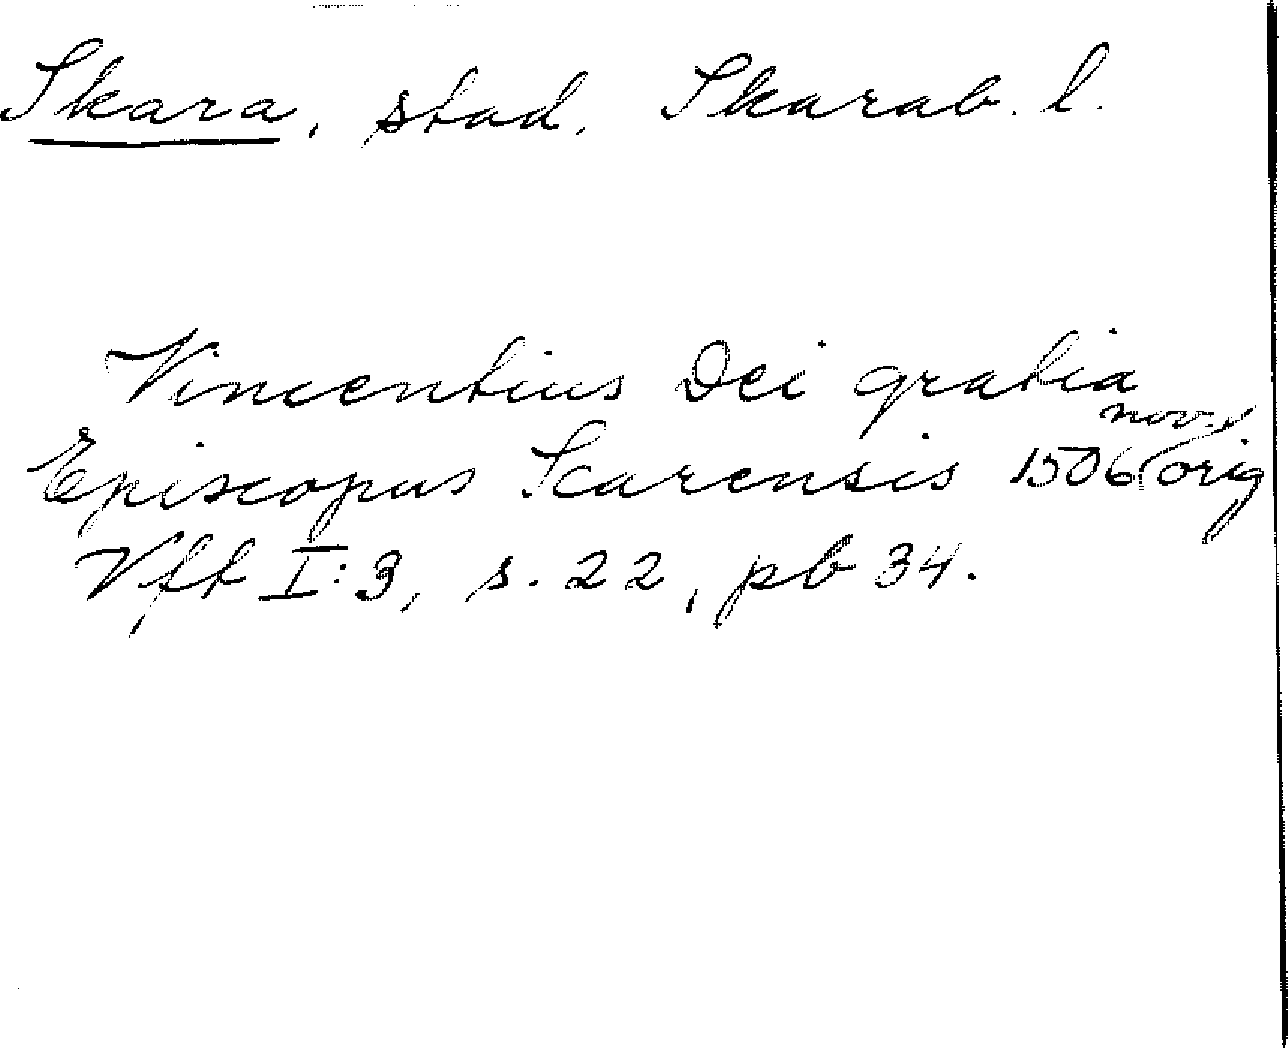 Skara, stad. Skarab. l.
Vincentius Dei gratia
Episcopus Scarensis 1506 nov. orig
Vft I:3, s. 22, pb 34.